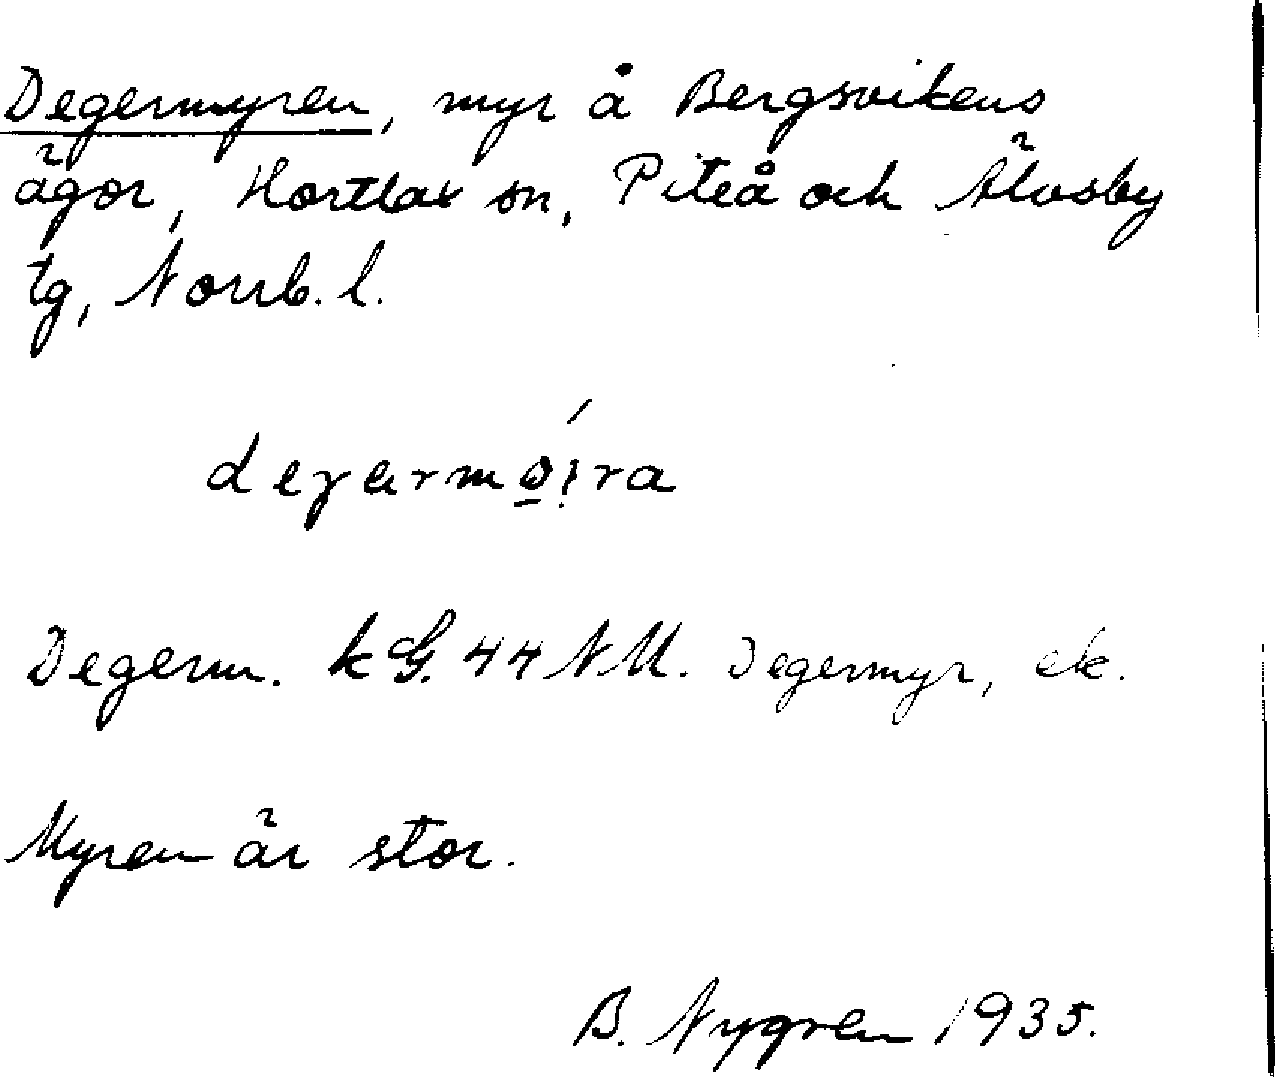 Degermyren, myr å Bergsvikens
ägor, Hortlax sn, Piteå och Älvsby
tg, Norrb. l.
Degerm. kG. 44 NM. Degermyr, ek.
Myren är stor.
B. Nygren 1935.